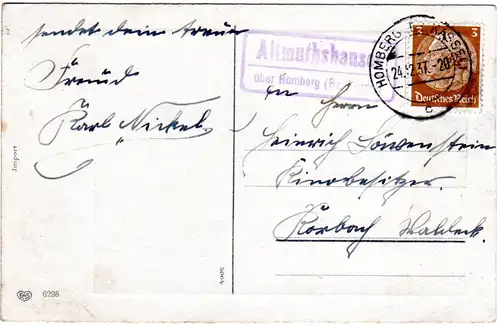 sendet dein treuer
Freund
Karl Nickel.
Import
6298
Altmuthshausen
über Homberg (Bz.
HOMBERG KASSEL
24.12.37.-20
c
3 3
Deutsches Reich
An Herrn
Heinrich Löwenstein
Kinobesitzer.
Korbach Waldeck.